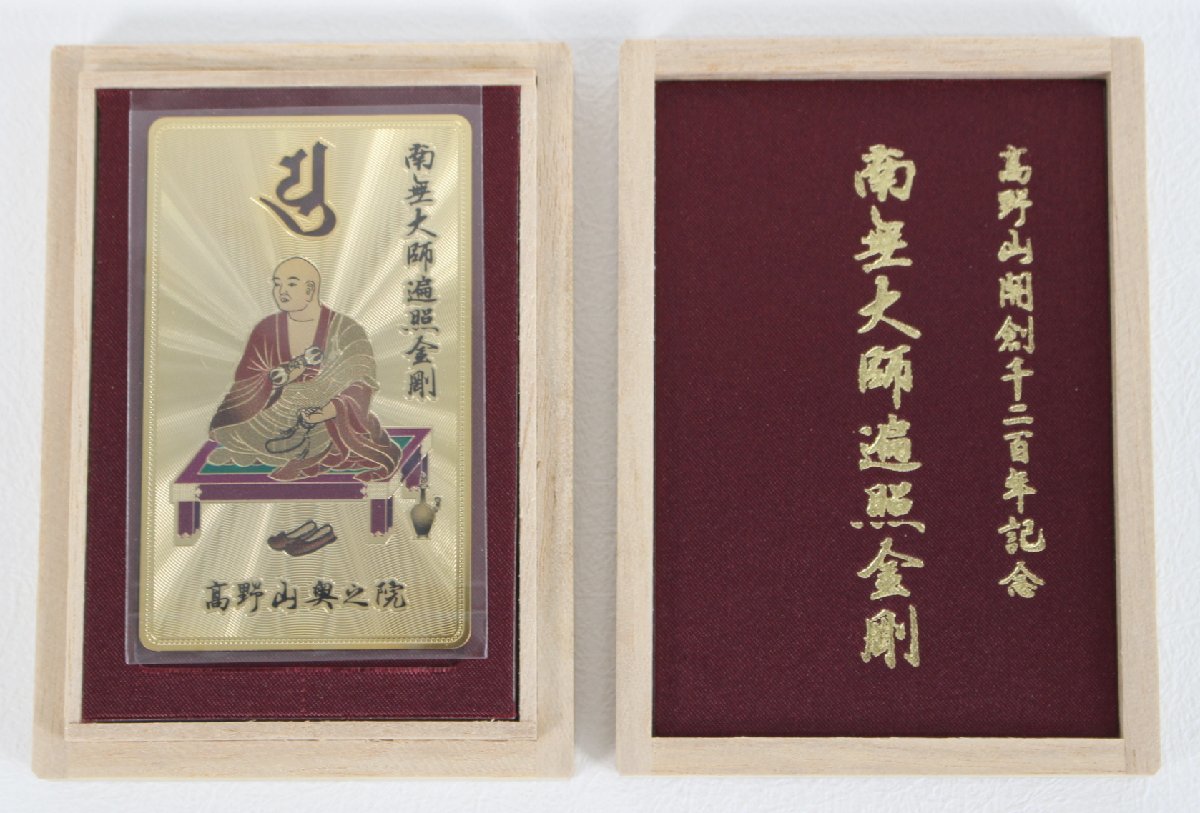 𑖧𑖲
南無大師遍照金剛
高野山奥之院
高野山開創千二百年記念
南無大師遍照金剛